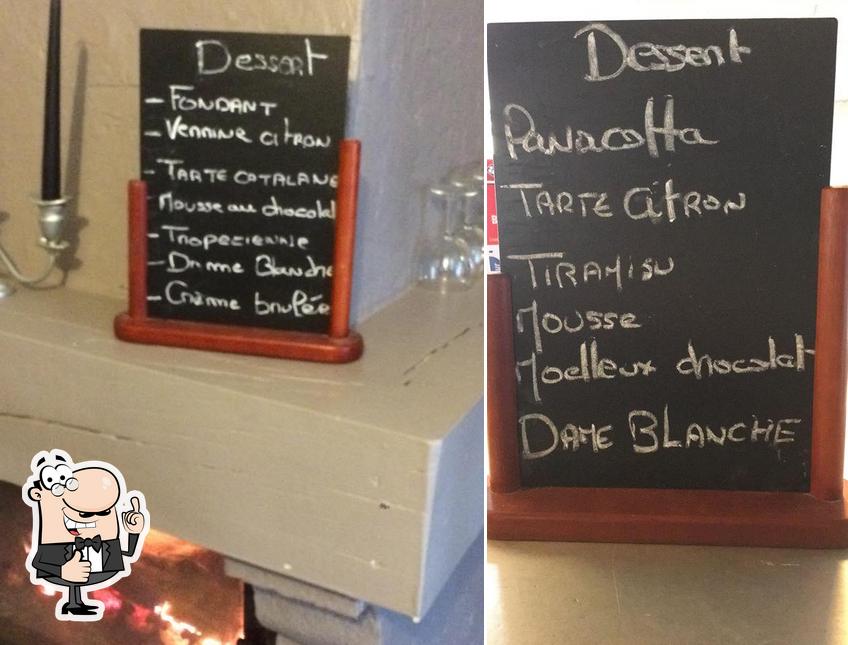 Dessert
- FONDANT
- Verrine citron
- TARTE CATALANE
- Mousse au chocolat
- Tropezienne
- Dame Blanche
- Crème brulée
Dessert
Panacotta
TARTE CitRON
TIRAMISU
Mousse
Moelleux chocolat
DAME BLANCHE